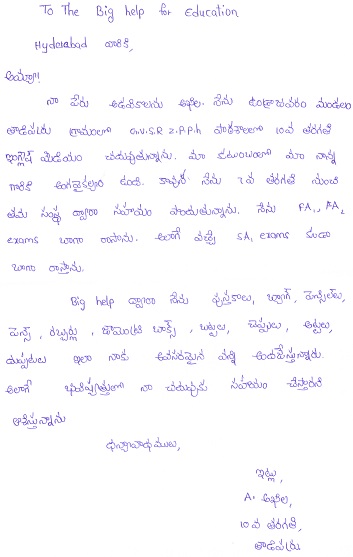 To The Big help for Education
Hyderabad వారికి,
అయ్యా!!
నా పేరు అడపికాలను అఖిల. నేను ఉండ్రాజవరం మండలం
తాడిపర్రు గ్రామంలో G.V.S.R Z.P.P.h పాఠశాలలో 10వ తరగతి
ఇంగ్లీష్ మీడియం చదువుతున్నాను. మా కుటుంబంలో మా నాన్న
గారికి అంగవైకల్యం ఉంది. కావున నేను 7వ తరగతి నుంచి
తమ సంస్థ ద్వారా సహాయం పొందుతున్నాను. నేను FA1, FA2
exams బాగా రాసాను. అలాగే వచ్చే SA1 exams కుడా
బాగా రాస్తాను.
Big help ద్వారా నేను పుస్తకాలు, బ్యాగ్, పెన్సిల్లు,
పెన్స్, రబ్బర్లు, జామెంట్రీ బాక్స్, బట్టలు, చెప్పులు, అట్టలు,
దుప్పటులు ఇలా నాకు అవసరమైన వన్ని అందజేస్తున్నారు.
అలాగే భవిష్యత్తులో నా చదువుకు సహాయం చేస్తారని
ఆశిస్తున్నాను
ధన్యావాధములు,
ఇట్లు,
A. అఖిల,
10వ తరగతి,
తాడిపర్రు